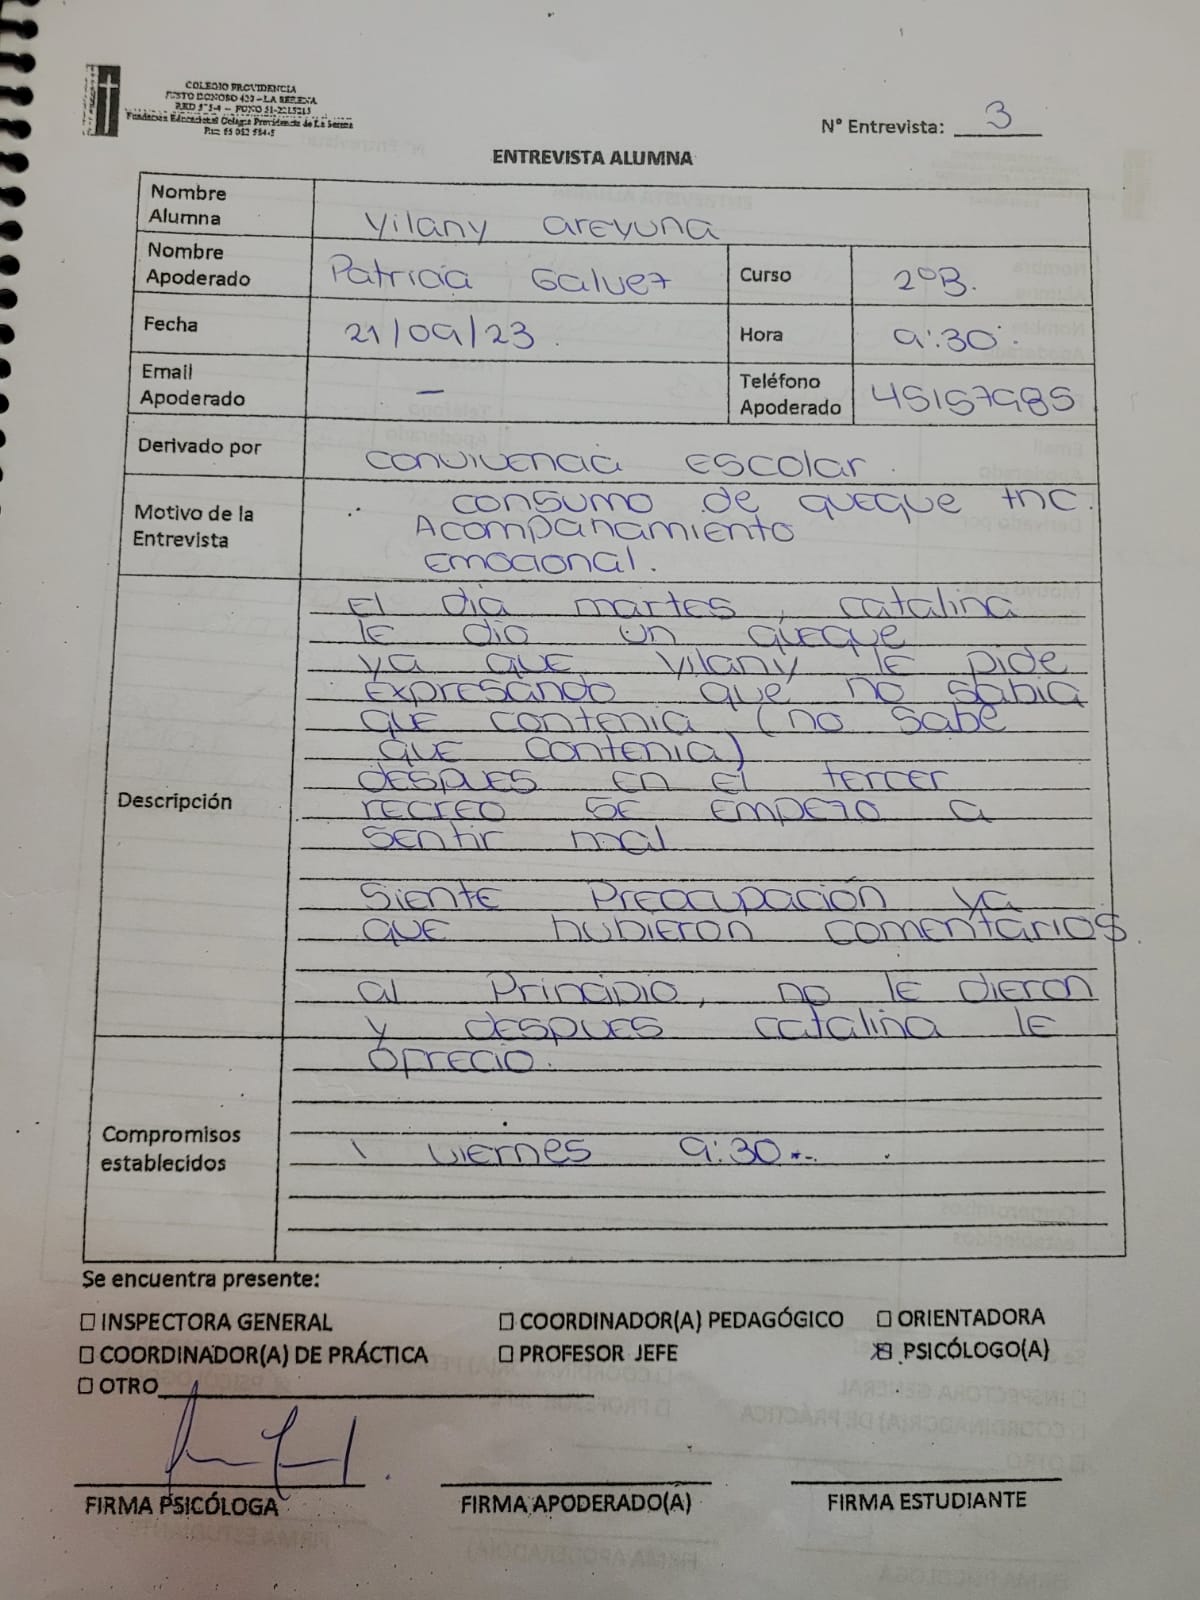 COLEGIO PROVIDENCIA
JUSTO DONOSO 420 – LA SERENA
Fundación Educacional Colegio Providencia de La Serena
N° Entrevista: 3
ENTREVISTA ALUMNA
Nombre Alumna Yilany areyuna
Nombre Apoderado Patricia Galvez Curso 2°B.
Fecha 21/09/23. Hora 9:30.
Email Apoderado – Teléfono Apoderado 45157985
Derivado por convivencia Escolar.
Motivo de la Entrevista consumo de queque thc.
Acompanamiento
Emocional.
Descripción
El dia martes, catalina
le dio un queque
ya que Yilany le pide
Expresando que no sabia
que contenia (no sabe
que contenia)
despues en el tercer
recreo se empezo a
sentir mal
Siente Preocupación ya
que hubieron comentarios.
al Principio, no le dieron
y despues catalina le
ofrecio.
Compromisos establecidos
viernes 9:30.
Se encuentra presente:
☐ INSPECTORA GENERAL ☐ COORDINADOR(A) PEDAGÓGICO ☐ ORIENTADORA
☐ COORDINADOR(A) DE PRÁCTICA ☐ PROFESOR JEFE ☒ PSICÓLOGO(A)
☐ OTRO
FIRMA PSICÓLOGA FIRMA APODERADO(A) FIRMA ESTUDIANTE